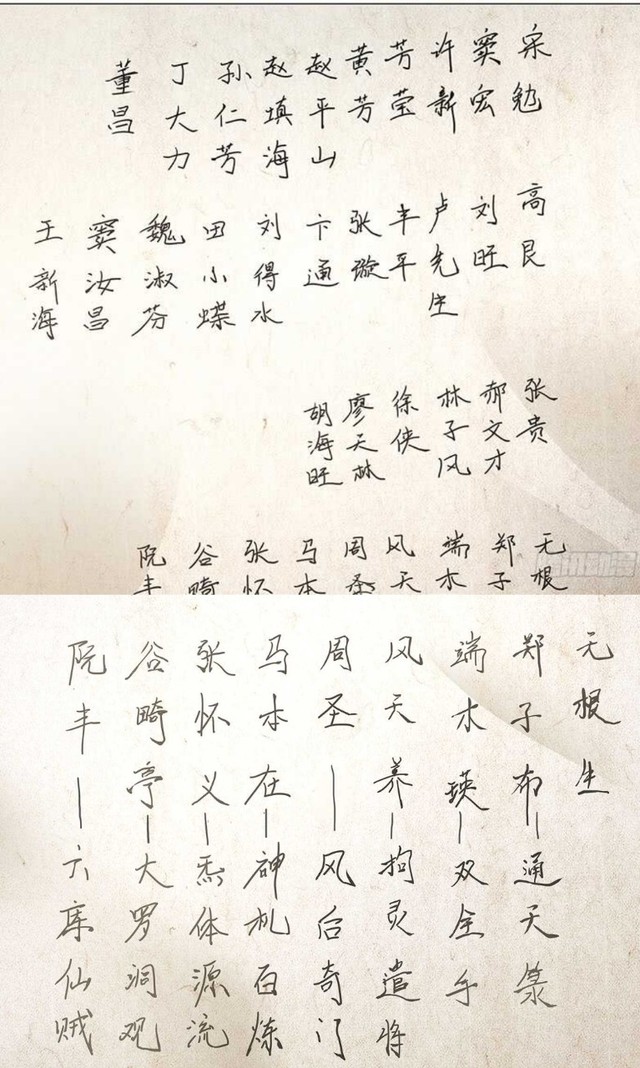 宋勉
窦宏
许新
芳莹
黄芳
赵平山
赵填海
孙仁芳
丁大力
董昌
高艮
刘旺
卢先生
丰平
张璇
卞通
刘得水
田小蝶
魏淑芬
窦汝昌
王新海
张贵
郝文才
林子风
徐侠
廖天林
胡海旺
无根
郑子
端木
风天
周圣
马本
张怀
谷畸
阮丰
无根生
郑子布—通天箓
端木瑛—双全手
风天养—拘灵遣将
周圣—风后奇门
马本在—神机百炼
张怀义—炁体源流
谷畸亭—大罗洞观
阮丰—六库仙贼